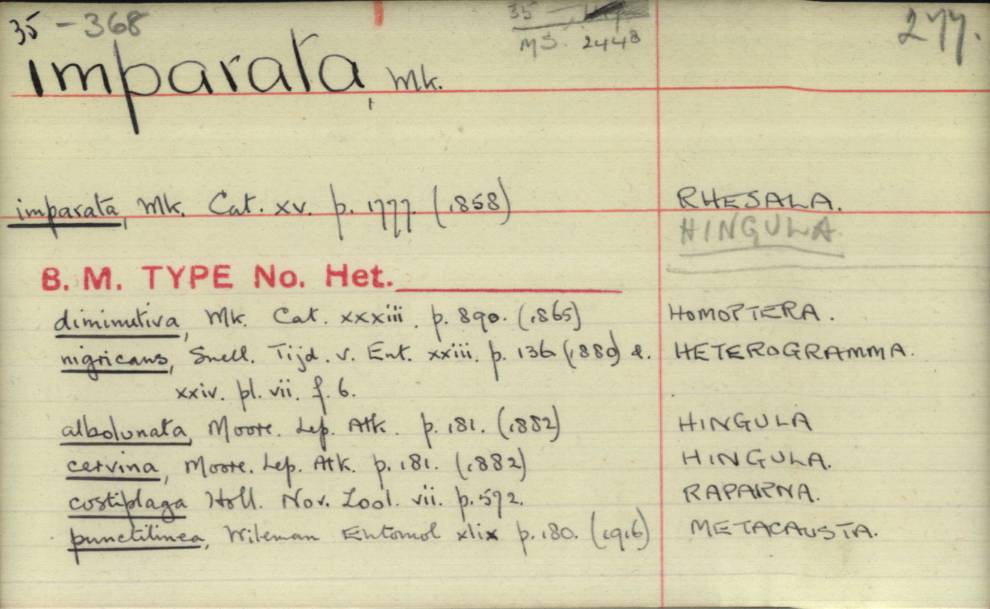 35 - 368
35
MS. 2448
277.
imparata, Wk.
imparata, Wk. Cat. xv. p. 1777. (1858) RHESALA.
HINGULA
B. M. TYPE No. Het.
diminutiva, Wk. Cat. xxxiii. p. 890. (1865) HOMOPTERA.
nigricans, Snell. Tijd. v. Ent. xxiii. p. 136 (1880) &. HETEROGRAMMA.
xxiv. pl. vii. f. 6.
albolunata, Moore. Lep. Atk. p. 181. (1882) HINGULA
cervina, Moore. Lep. Atk. p. 181. (1882) HINGULA.
costiplaga Holl. Nov. Zool. vii. p. 572. RAPARNA.
punctilinea, Wileman Entomol xlix p. 180. (1916) METACAUSTA.